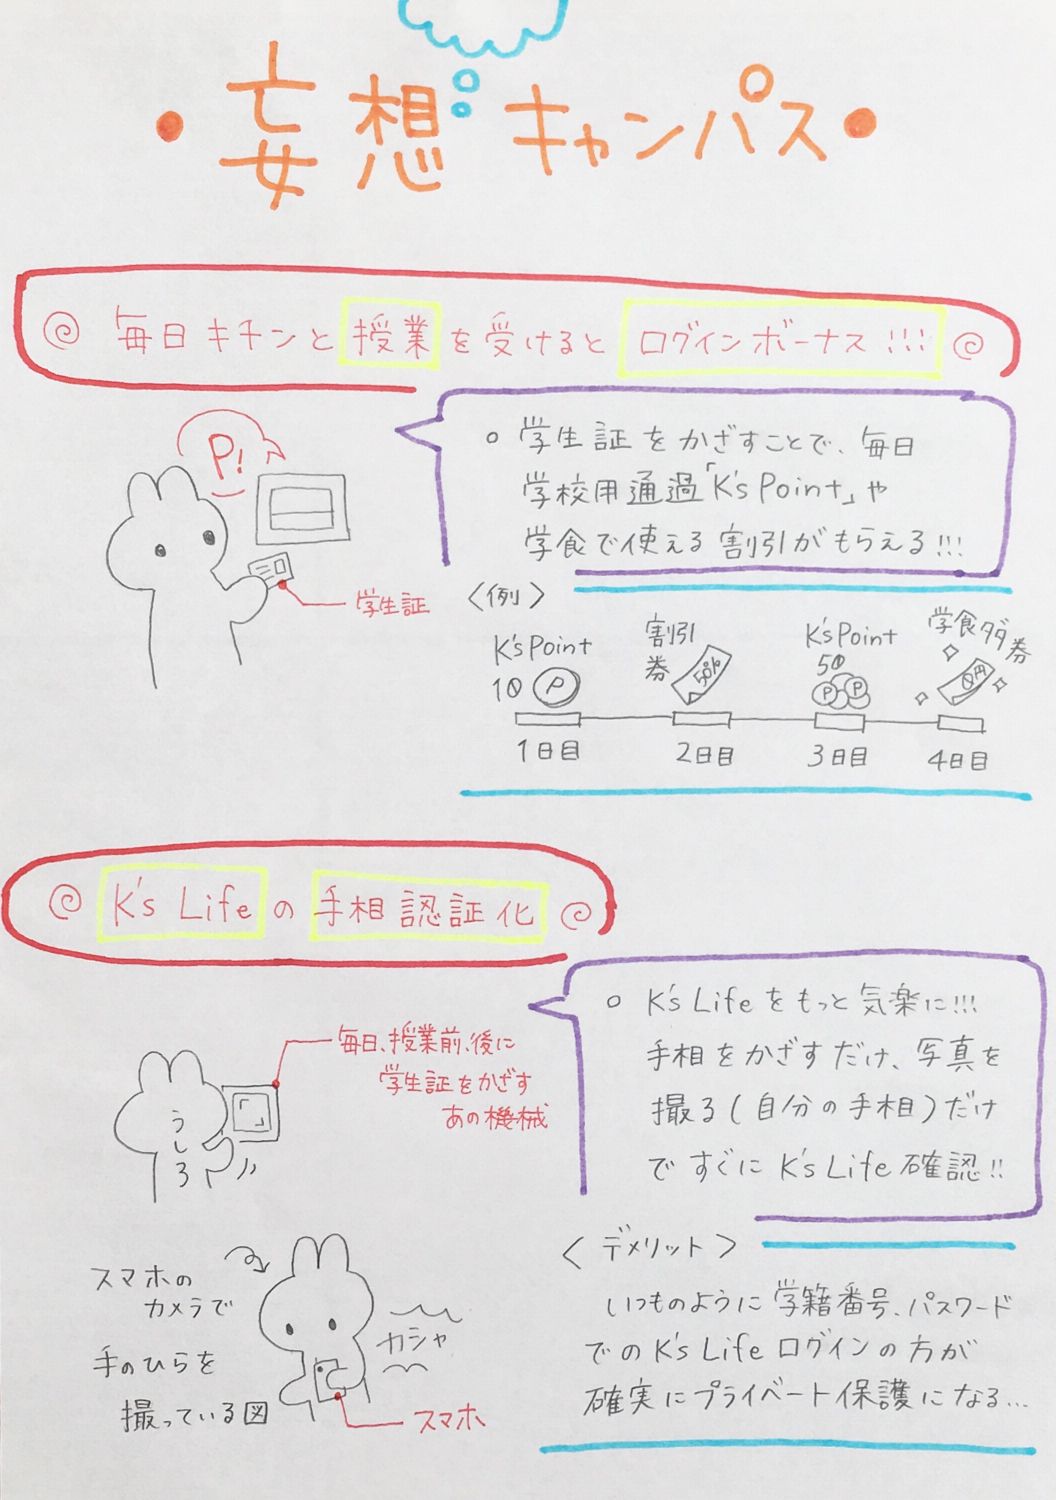 妄想キャンパス
毎日キチンと授業を受けるとログインボーナス!!!
P!
学生証
学生証をかざすことで、毎日
学校用通過「K's Point」や
学食で使える割引がもらえる!!!
〈例〉
K's Point
10 P
割引
券
50%
K's Point
50
P P
学食タダ券
0円
1日目
2日目
3日目
4日目
K's Lifeの手相認証化
毎日、授業前、後に
学生証をかざす
あの機械
うしろ
K's Lifeをもっと気楽に!!!
手相をかざすだけ、写真を
撮る(自分の手相)だけ
ですぐにK's Life確認!!
スマホの
カメラで
手のひらを
撮っている図
カシャ
スマホ
〈デメリット〉
いつものように学籍番号、パスワード
でのK's Lifeログインの方が
確実にプライベート保護になる...